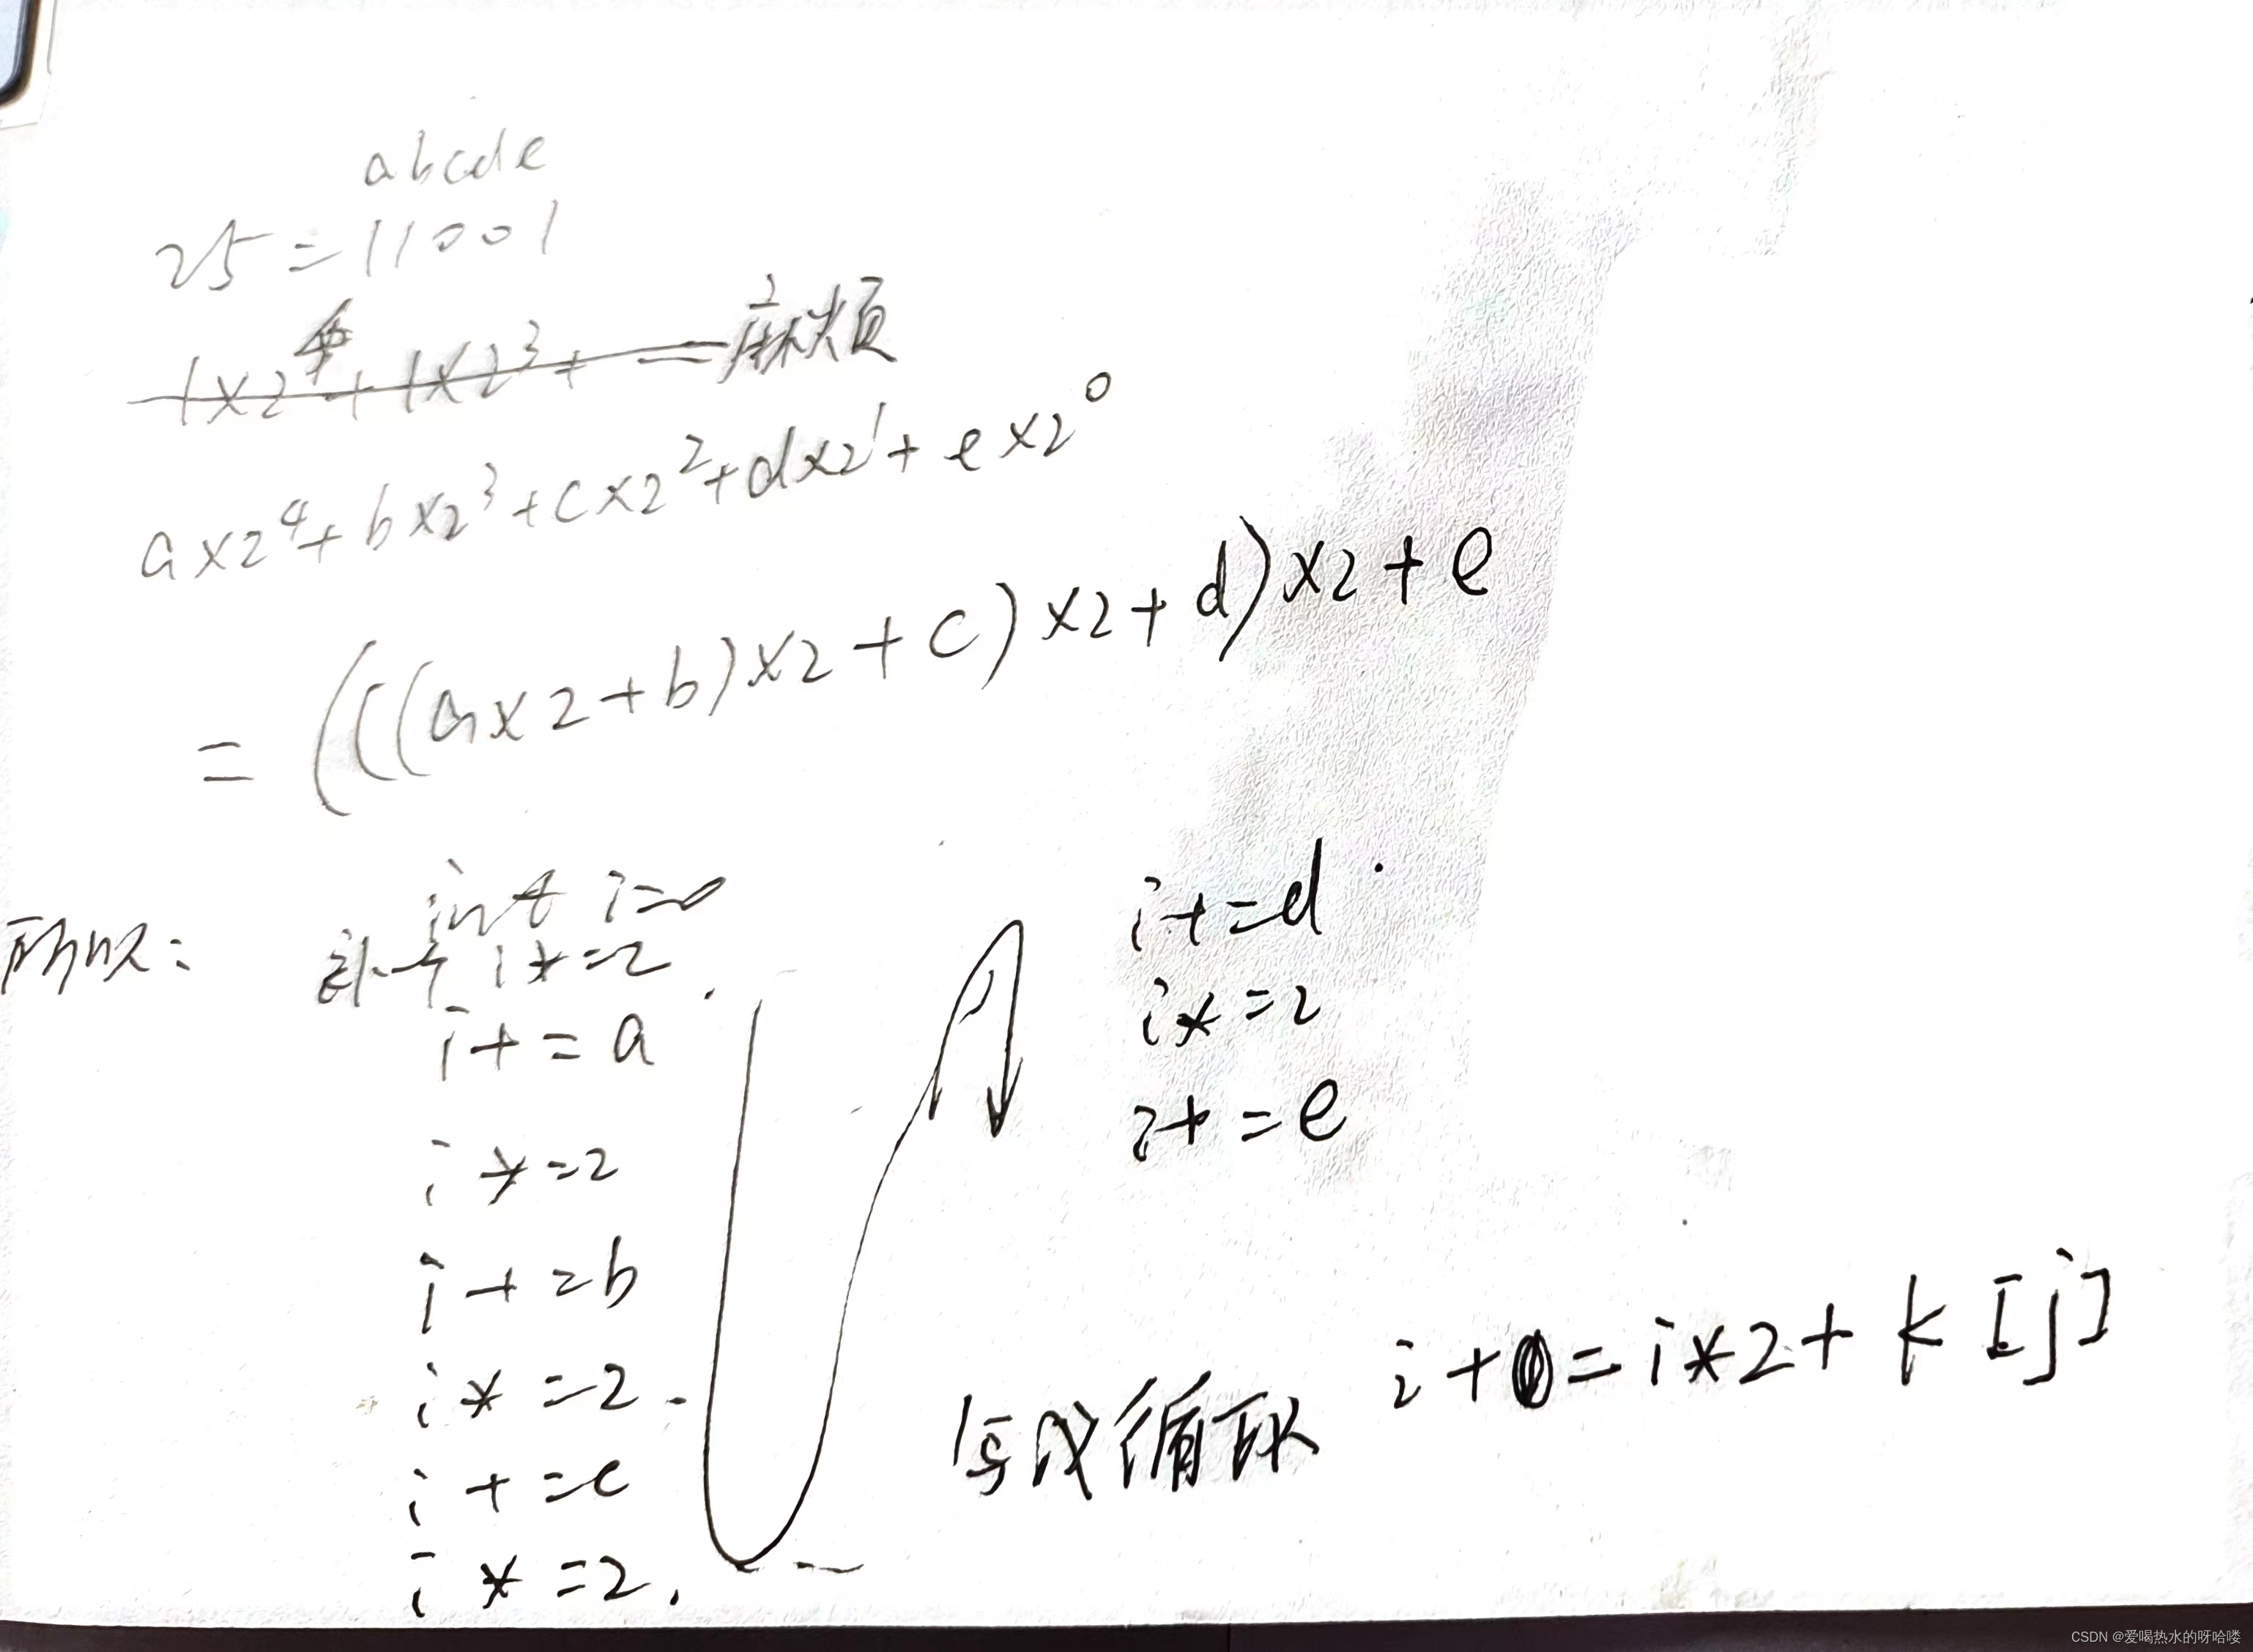 abcde
25=11001
1×2⁴+1×2³+ = 麻烦
a×2⁴+b×2³+c×2²+d×2¹+e×2⁰
=(((a×2+b)×2+c)×2+d)×2+e
所以:
int i=0
补一个 i*=2
i+=a
i*=2
i+=b
i*=2
i+=c
i*=2
i+=d
i*=2
i+=e
写成循环 i+=i*2+k[j]
CSDN @爱喝热水的呀哈喽